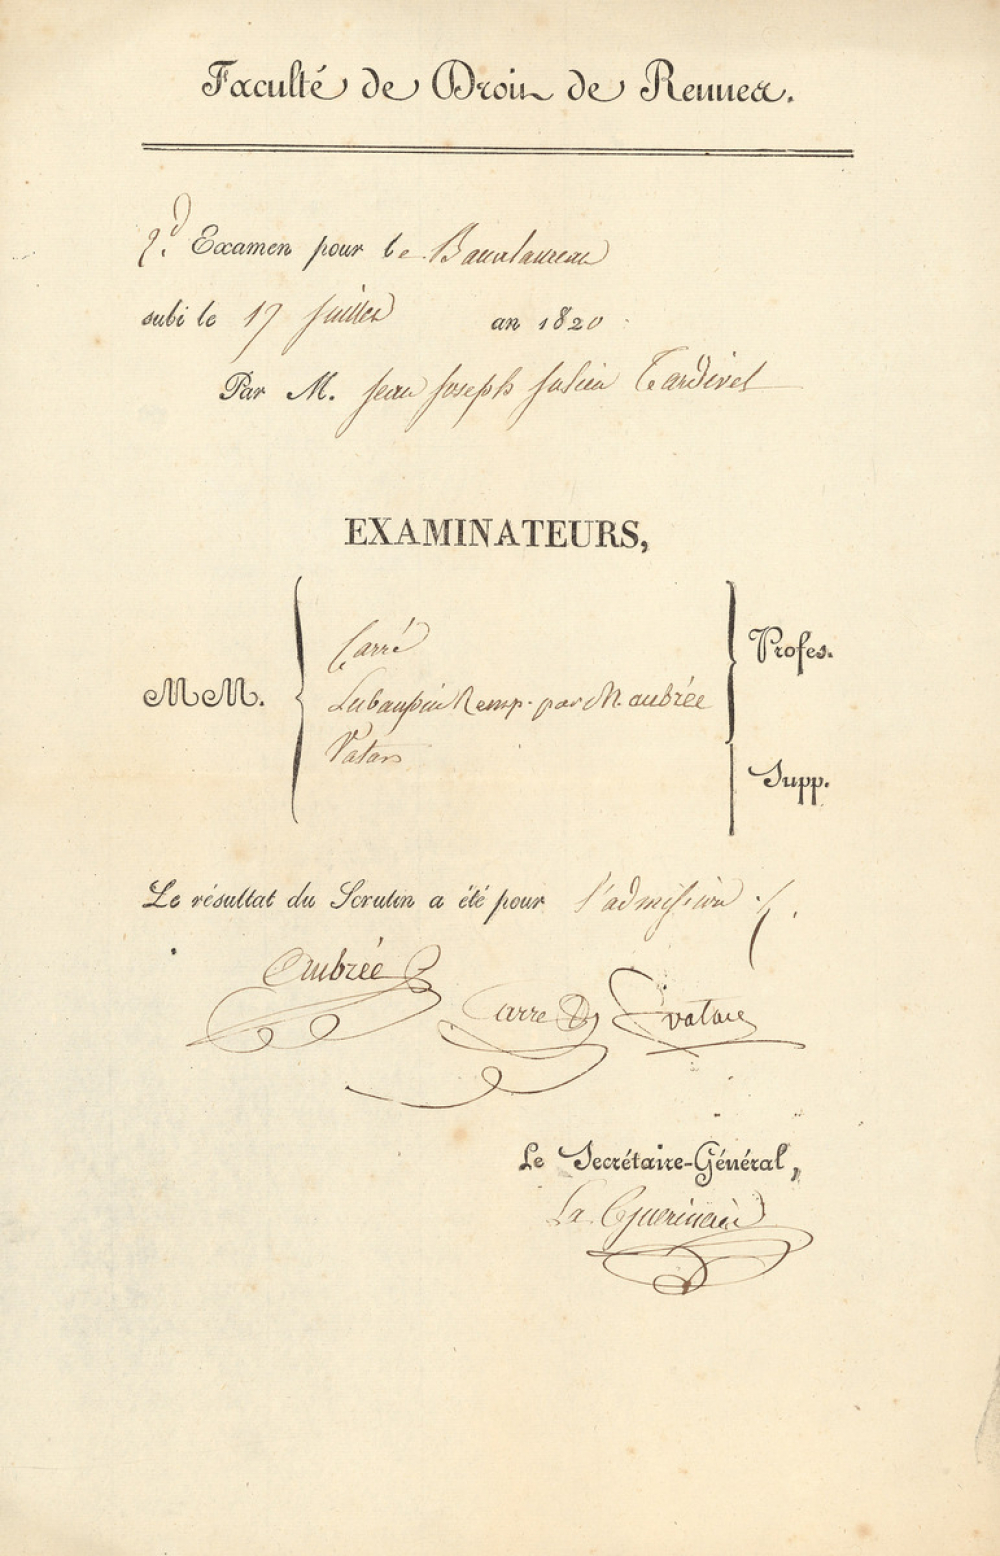 Faculté de Droit de Rennes.
2.d Examen pour le Baccalaureat
subi le 17 Juillet an 1820
Par M. Jean Joseph Julien Tardivel
EXAMINATEURS,
MM.
Carré
Lesbaupin Remp. par M. aubrée
Vatar
Profes.
Supp.
Le résultat du Scrutin a été pour l'admission
Aubrée
Carré
vatar
Le Secrétaire-Général,